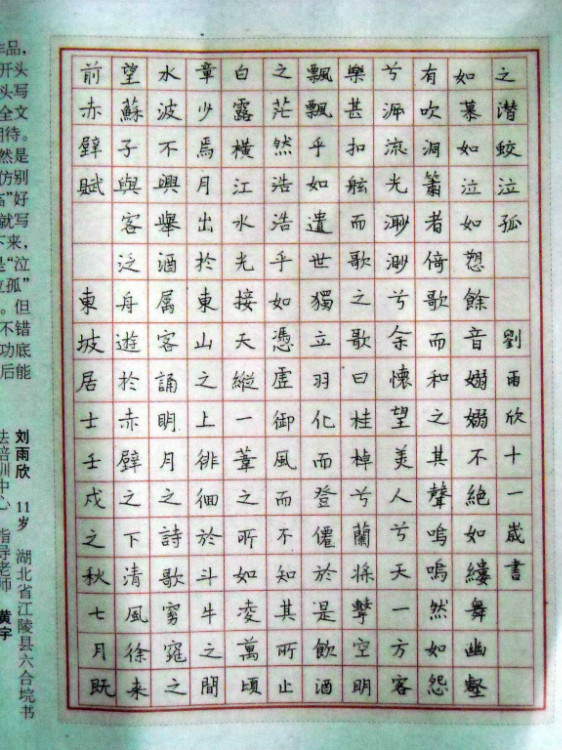 作品，
开头
头写
全文
期待。
然是
仿别
"好
就写
下来，
是"泣
泣孤"
。但
不错
功底
后能
刘雨欣 11岁 湖北省江陵县六合垸书
法培训中心 指导老师 黄宇
前赤壁賦 東坡居士壬戌之秋七月既
望蘇子與客泛舟遊於赤壁之下清風徐來
水波不興舉酒属客誦明月之詩歌窈窕之
章少焉月出於東山之上徘徊於斗牛之間
白露橫江水光接天縱一葦之所如凌萬頃
之茫然浩浩乎如憑虛御風而不知其所止
飄飄乎如遺世獨立羽化而登僊於是飲酒
樂甚扣舷而歌之歌曰桂棹兮蘭槳擊空明
兮泝流光渺渺兮余懷望美人兮天一方客
有吹洞簫者倚歌而和之其聲嗚嗚然如怨
如慕如泣如愬餘音嫋嫋不絕如縷舞幽壑
之潛蛟泣孤 劉雨欣十一歲書